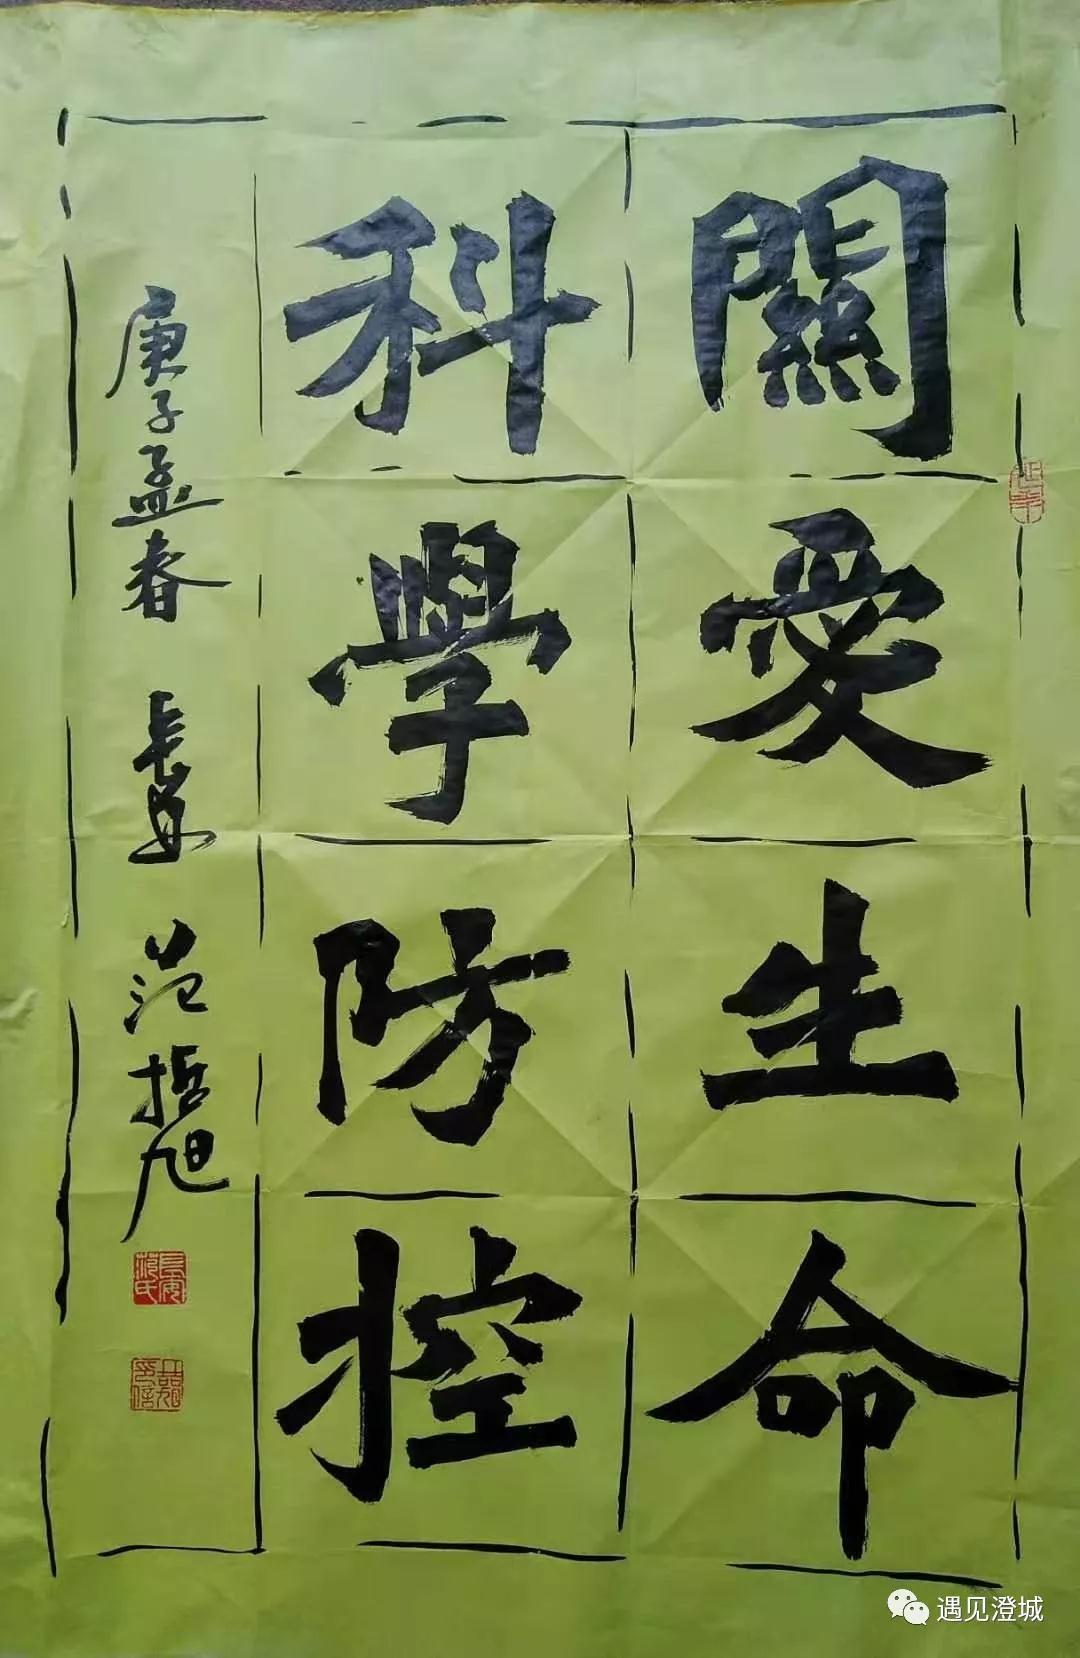 關愛生命
科學防控
庚子孟春 長安 范哲旭
長安范氏
遇见澄城